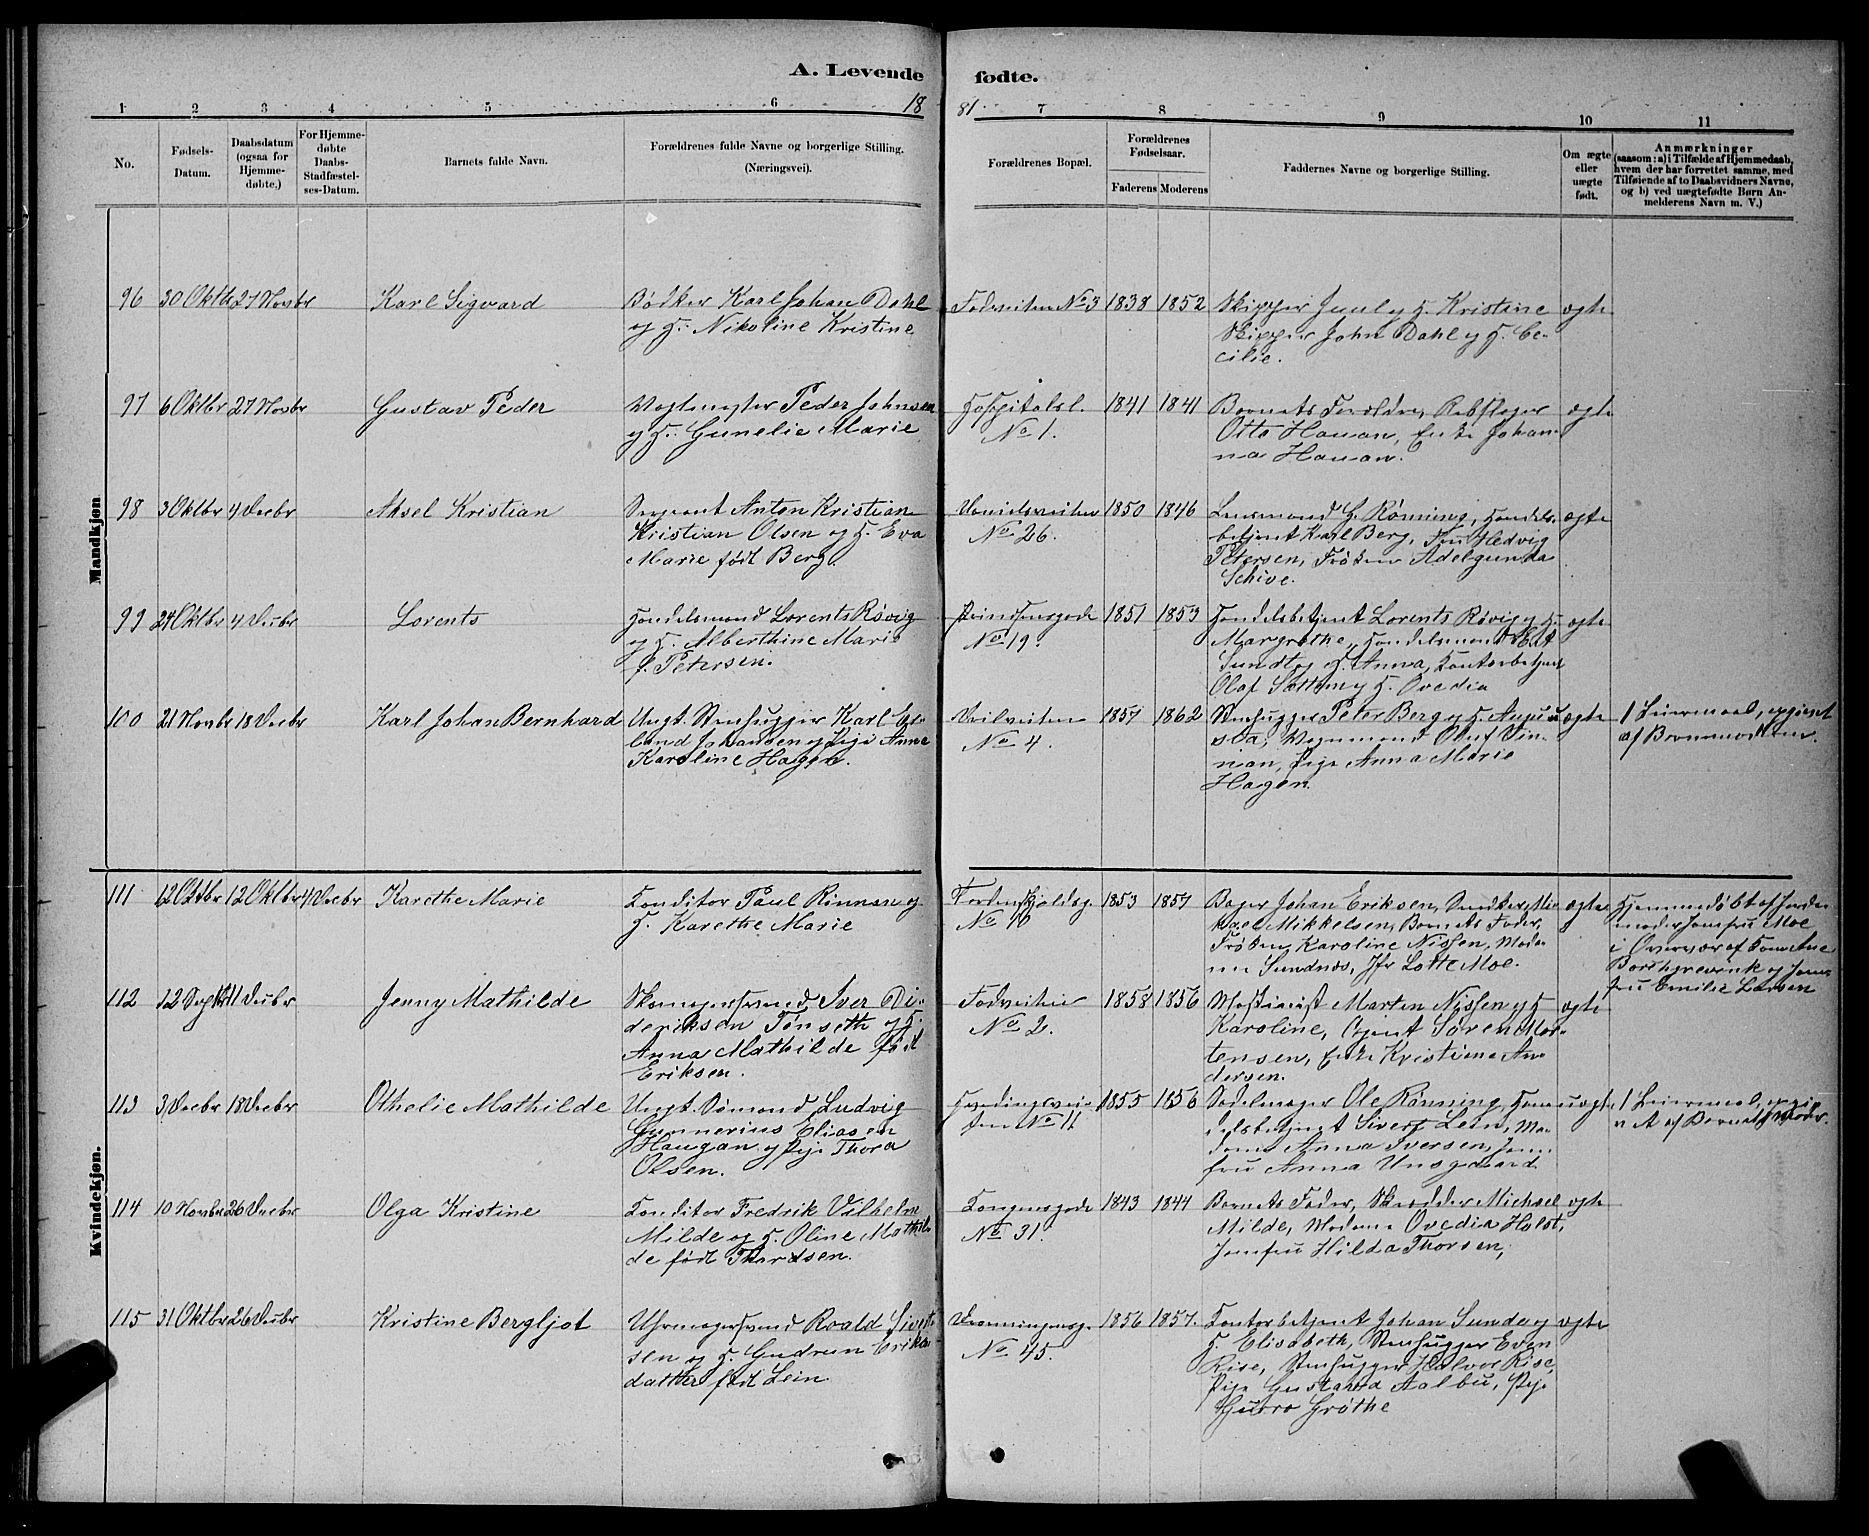 A. Levende fødte.
18 81.
1 2 3 4 5 6 7 8 9 10 11
No.
Fødsels-
Datum.
Daabsdatum
(ogsaa for
Hjemme-
døbte.)
For Hjemme-
døbte
Daabs-
Stadfæstel-
ses-Datum.
Barnets fulde Navn.
Forældrenes fulde Navne og borgerlige Stilling.
(Næringsvei).
Forældrenes Bopæl.
Forældrenes
Fødselsaar.
Faderens Moderens
Faddernes Navne og borgerlige Stilling.
Om ægte
eller
uægte
født.
Anmærkninger
(saasom: a) i Tilfælde af Hjemmedaab,
hvem der har forrettet samme, med
Tilføiende af to Daabsvidners Navne,
og b) ved uægtefødte Børn An-
melderens Navn m. V.)
Mandkjøn
96 30 Oktbr 27 Novbr Karl Sigvard
Bødker Karl Johan Dahl
og H. Nikoline Kristine
Fodveiten No 3 1838 1852
Skipper Juul og H. Kristine
Skipper John Dahl og H. Ce-
cilie.
ægte
97 6 Oktbr 27 Novbr Gustav Peder
Vægtmester Peder Johnsen
og H. Gunelie Marie
Hospitalsl.
No 1.
1841 1841
Barnets Forældre, Rebslager
Otto Hauan, Enke Johan-
na Hauan.
ægte
98 3 Oktbr 4 Decbr Aksel Kristian
Sergeant Anton Kristian
Kristian Olsen og H. Eva
Marie født Berg.
Danielsveiten
No 26.
1850 1846
Lensmand G. Rønning, Handels-
betjent Karl Berg, Fru Hedvig
Petersen, Frøken Adelgunda
Schive.
ægte
99 24 Oktbr 4 Decbr Lorents
Handelsmand Lorents Røvig
og H. Alberthine Marie
f. Petersen.
Prindsensgade
No 19.
1851 1853
Handelsbetjent Lorents Røvig og H.
Margrethe, Handelsmand Elef
Sundt og H. Anna, Kontorbetjent
Olaf Sættem og H. Ovedia
ægte
100 21 Novbr 18 Decbr Karl Johan Bernhard
Ungk. Stenhugger Karl Er-
land Johansen og Pige Anne
Karoline Hagen.
Veilveiten
No 4.
1857 1862
Stenhugger Peter Berg og H. Augu-
sta, Vognmand Oluf Vin-
nian, Pige Anna Marie
Hagen.
uægte
1 Leiermaal, opgivet
af Barnemoderen.
Kvindekjøn.
111 12 Oktbr 12 Oktbr 4 Decbr Karethe Marie
Conditor Paul Rinnan og
H. Karethe Marie
Tordenskjoldsg.
No 10
1853 1857
Bager Johan Eriksen, Snedker Mi-
kael Mikkelsen, Barnets Fader,
Frøken Karoline Nissen, Mada-
me Sundnes, Jfr Lotte Moe.
ægte
Hjemmedøbt af Jorde-
moder Jomfru Moe
i Overvær af
Borchgrevink og Jom-
fru Emilie Larsen
112 12 Septbr 11 Decbr Jenny Mathilde
Skomagersvend Iver Di-
deriksen Tønseth og H.
Anna Mathilde født
Eriksen.
Fodveiten
No 2.
1858 1856
Maskinist Marten Nyssen og H.
Karoline, Agent Søren Mor-
tensen, Enke Kristiane An-
dersen.
ægte
113 3 Decbr 18 Decbr Othelie Mathilde
Ungk. Sømand Ludvig
Gunnerius Eliasen
Haugan og Pige Thora
Olsen.
No 11
1855 1856
Sadelmager Ole Rønning, Han-
delsbetjent Sivert Lein, Ma-
dame Anna Iversen, Jom-
fru Anna Unsgaard
uægte
1 Leiermaal, opgiv-
et af Barnets Moder.
114 10 Novbr 26 Decbr Olga Kristine
Conditor Fredrik Vilhelm
Milde og H. Oline Mathil-
de født Thordsen.
Kongensgade
No 31.
1843 1844
Barnets Fader, Skrædder Michael
Milde, Madame Ovedia Holst,
Jomfru Hilda Thorsen,
ægte
115 31 Oktbr 26 Decbr Kristine Bergljot
Uhrmagersvend Roald Sivert-
sen og H. Gudrun Eriks-
datter født Lein.
Dronningensg.
No 45.
1856 1857.
Kontorbetjent Johan Sunda og
H. Elisabeth, Stenhugger Even
Rise, Stenhugger Halvor Rise,
Pige Gustava Aalbu, Pige
Guro Grøthe
ægte